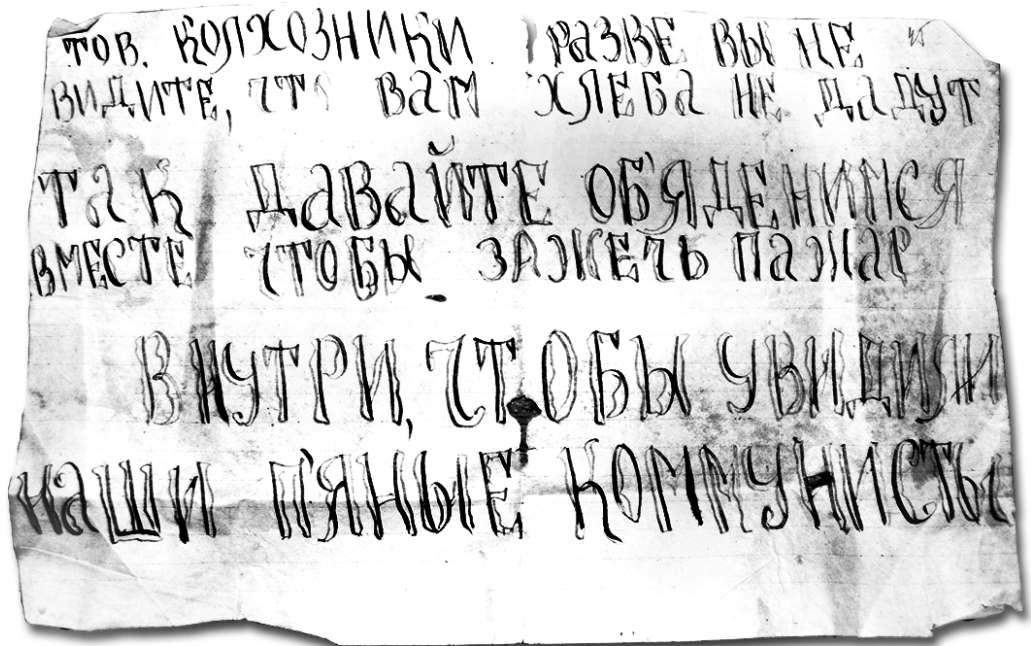 тов. колхозники разве вы не
видите, что вам хлеба не дадут
так давайте об'яденимся
вместе чтобы зажечь пажар
внутри, чтобы увидили
наши п'яные коммунисты